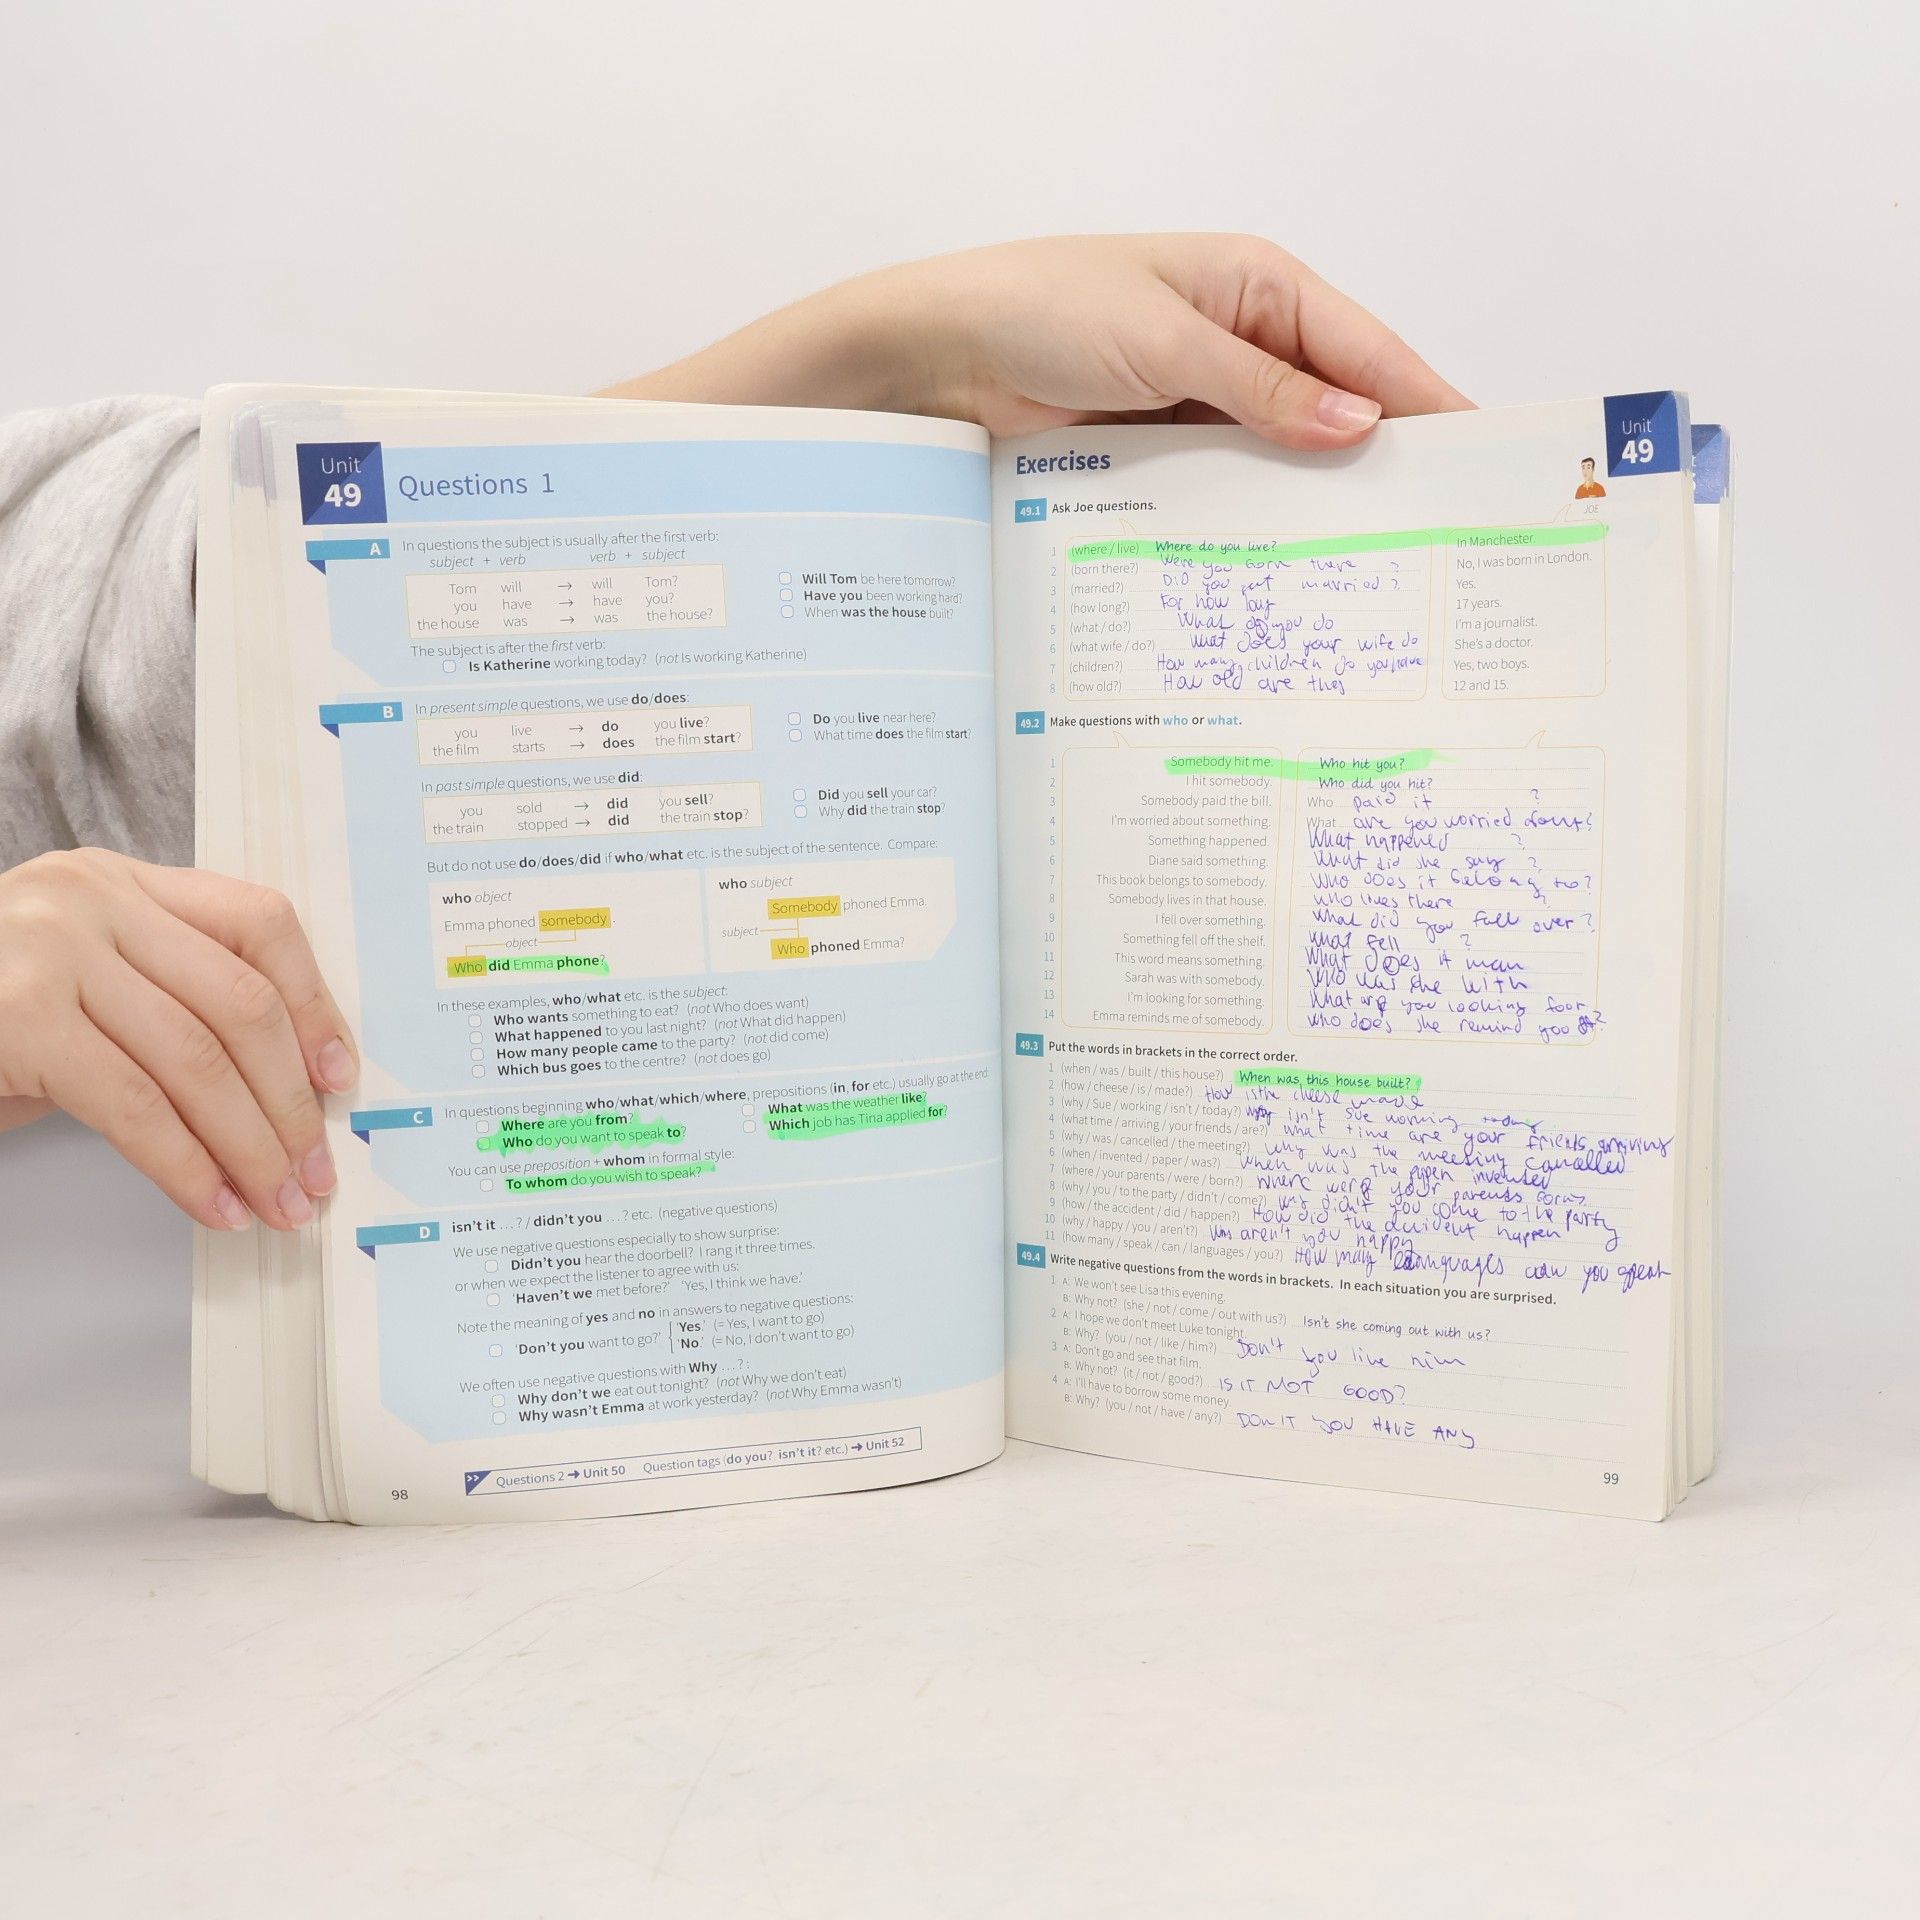 Unit
49
Questions 1
A
In questions the subject is usually after the first verb:
subject + verb verb + subject
Tom will → will Tom?
you have → have you?
the house was → was the house?
Will Tom be here tomorrow?
Have you been working hard?
When was the house built?
The subject is after the first verb:
Is Katherine working today? (not Is working Katherine)
B
In present simple questions, we use do/does:
you live → do you live?
the film starts → does the film start?
Do you live near here?
What time does the film start?
In past simple questions, we use did:
you sold → did you sell?
the train stopped → did the train stop?
Did you sell your car?
Why did the train stop?
But do not use do/does/did if who/what etc. is the subject of the sentence. Compare:
who object
Emma phoned somebody.
object
Who did Emma phone?
who subject
Somebody phoned Emma.
subject
Who phoned Emma?
In these examples, who/what etc. is the subject:
Who wants something to eat? (not Who does want)
What happened to you last night? (not What did happen)
How many people came to the party? (not did come)
Which bus goes to the centre? (not does go)
C
In questions beginning who/what/which/where, prepositions (in, for etc.) usually go at the end:
Where are you from?
Who do you want to speak to?
What was the weather like?
Which job has Tina applied for?
You can use preposition + whom in formal style:
To whom do you wish to speak?
D
isn't it …? / didn't you …? etc. (negative questions)
We use negative questions especially to show surprise:
Didn't you hear the doorbell? I rang it three times.
or when we expect the listener to agree with us:
'Haven't we met before?' 'Yes, I think we have.'
Note the meaning of yes and no in answers to negative questions:
'Don't you want to go?' 'Yes.' (= Yes, I want to go)
'No.' (= No, I don't want to go)
We often use negative questions with Why …?:
Why don't we eat out tonight? (not Why we don't eat)
Why wasn't Emma at work yesterday? (not Why Emma wasn't)
Questions 2 → Unit 50 Question tags (do you? isn't it? etc.) → Unit 52
98
Exercises
Unit
49
JOE
49.1 Ask Joe questions.
1 (where / live) Where do you live? In Manchester.
2 (born there?) Were you born there ? No, I was born in London.
3 (married?) Did you get married ? Yes.
4 (how long?) For how long 17 years.
5 (what / do?) What do you do I'm a journalist.
6 (what wife / do?) What does your wife do She's a doctor.
7 (children?) How many children do you have Yes, two boys.
8 (how old?) How old are they 12 and 15.
49.2 Make questions with who or what.
1 Somebody hit me. Who hit you?
2 I hit somebody. Who did you hit?
3 Somebody paid the bill. Who paid it ?
4 I'm worried about something. What are you worried about?
5 Something happened. What happened ?
6 Diane said something. What did she say ?
7 This book belongs to somebody. Who does it belong to?
8 Somebody lives in that house. Who lives there ?
9 I fell over something. What did you fall over ?
10 Something fell off the shelf. What fell ?
11 This word means something. What does it man
12 Sarah was with somebody. Who was she with
13 I'm looking for something. What are you looking foor
14 Emma reminds me of somebody. Who does she remind you of?
49.3 Put the words in brackets in the correct order.
1 (when / was / built / this house?) When was this house built?
2 (how / cheese / is / made?) How is the cheese made
3 (why / Sue / working / isn't / today?) Why isn't Sue working today
4 (what time / arriving / your friends / are?) What time are your friends arriving
5 (why / was / cancelled / the meeting?) Why was the meeting cancelled
6 (when / invented / paper / was?) When was the paper invented
7 (where / your parents / were / born?) Where were your parents born?
8 (why / you / to the party / didn't / come?) Why didn't you come to the party
9 (how / the accident / did / happen?) How did the accident happen
10 (why / happy / you / aren't?) aren't you happy
11 (how many / speak / can / languages / you?) How many languages can you speak
49.4 Write negative questions from the words in brackets. In each situation you are surprised.
1 A: We won't see Lisa this evening.
B: Why not? (she / not / come / out with us?) Isn't she coming out with us?
2 A: I hope we don't meet Luke tonight.
B: Why? (you / not / like / him?) Don't you like him
3 A: Don't go and see that film.
B: Why not? (it / not / good?) IS IT NOT GOOD?
4 A: I'll have to borrow some money.
B: Why? (you / not / have / any?) DON'T YOU HAVE ANY
99